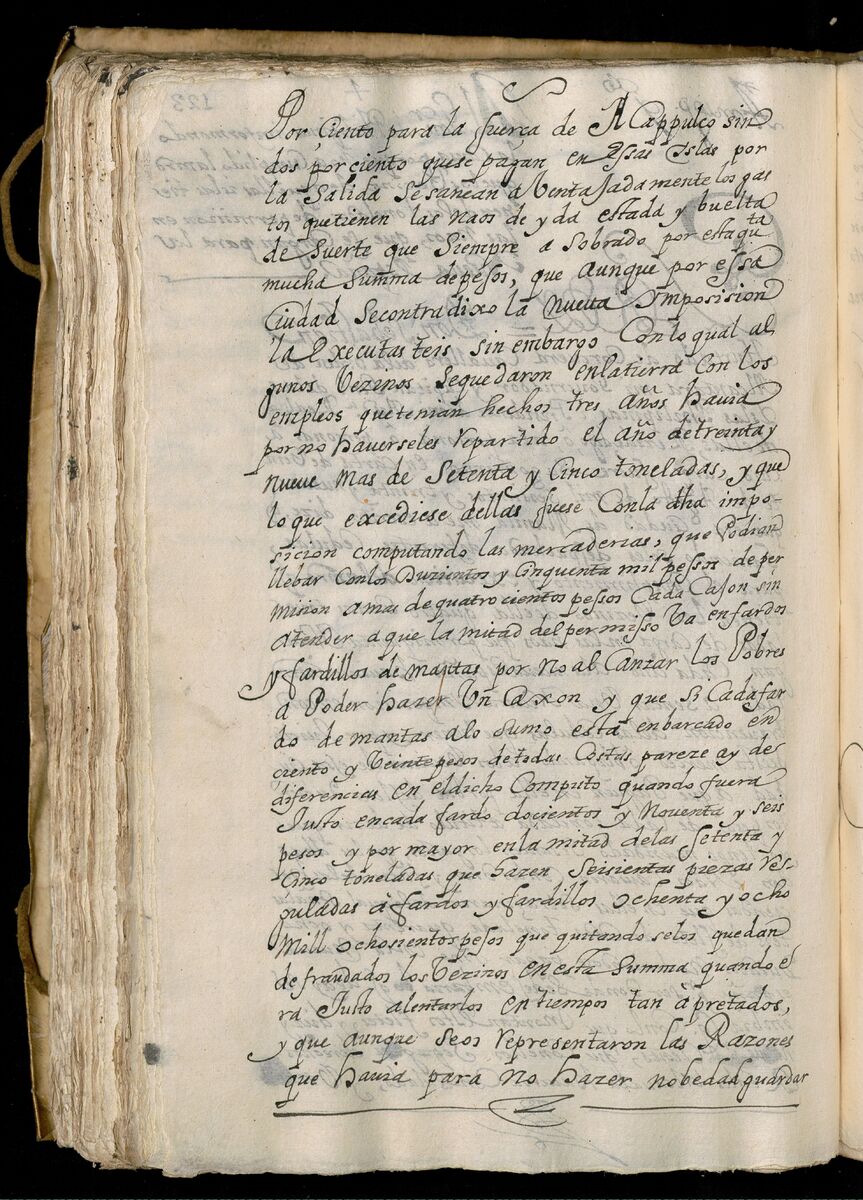 Por ciento para la fuerça de Acappulco sin
dos por ciento que se pagan en essas Islas por
la Salida Se sanean aVentaJadamente los gas
tos que tienen las naos de yda estada y buelta
de Suerte que Siempre a Sobrado por esta qta
mucha Summa de pesos, que aunque por essa
Ciudad Se contradixo la nueua Imposision
la Executasteis sin embargo Con lo qual al
gunos Vezinos Se quedaron en la tierra Con los
empleos que tenian hechos tres Años havia
por no haverseles repartido el año de treinta y
nueve mas de Setenta y Cinco toneladas, y que
lo que excediese dellas fuese Con la dha impo-
sicion computando las mercaderias, que Podian
llebar Con los Duzientos y Cinquenta mil pessos de per
mision a mas de quatrocientos pessos Cada Cajon sin
atender a que la mitad del permisso Va en fardos
y fardillos de mantas por no alCanzar los Pobres
a Poder hazer Un Caxon y que si Cada far
do de mantas a lo Sumo esta enbarcado en
ciento y Veinte pesos de todas Costas pareze ay de
diferencias en el dicho Computo quando fuera
Justo en cada fardo docientos y Noventa y seis
pesos y por mayor en la mitad de las Setenta y
Cinco toneladas que hazen Seisientas piezas res-
guladas a fardos y fardillos ochenta y ocho
Mill ochosientos pesos que quitandoselos quedan
defraudados los Vezinos en esta Summa quando e
ra Justo alentarlos en tiempos tan apretados,
y que aunque Se os representaron las Razones
que havia para No hazer nobedad guardar